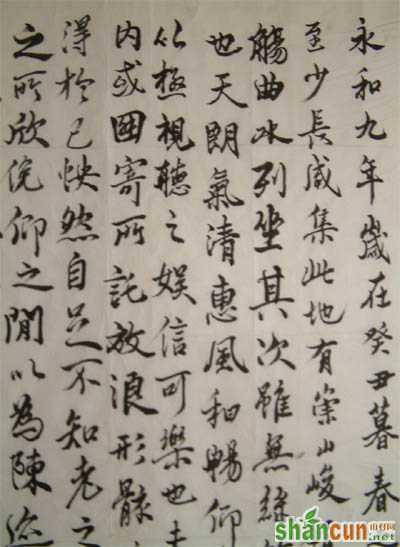 永和九年歲在癸丑暮春
至少長咸集此地有崇山峻
觴曲水列坐其次雖無絲
也天朗氣清惠風和暢仰
以極視聽之娛信可樂也夫
内或因寄所託放浪形骸
得於己怏然自足不知老之
之所欣俛仰之閒以為陳迹
shancun
山村网
.net